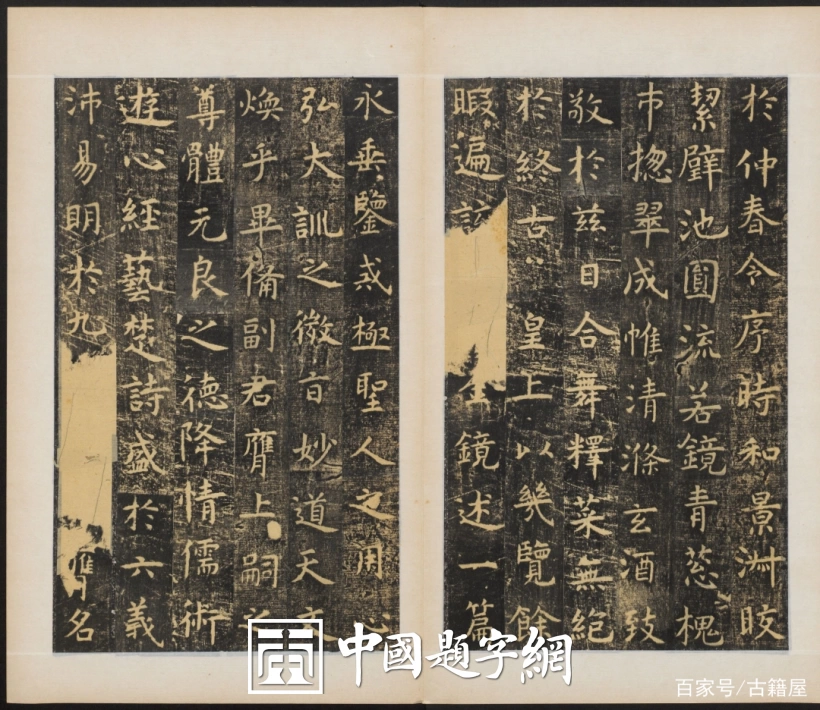 於仲春令序時和景淑皎
絜璧池圓流若鏡青葱槐
市揔翠成帷清滌玄酒致
敬於兹日合舞釋菜無絕
於終古皇上以幾覽餘
暇遍金鏡述一篇
永垂鑒戒極聖人之用心
弘大訓之微旨妙道天文
煥乎畢備副君膺上嗣
尊體元良之德降情儒術
遊心經藝楚詩盛於六義
沛易明於九膺名
中國題字網
百家号/古籍屋